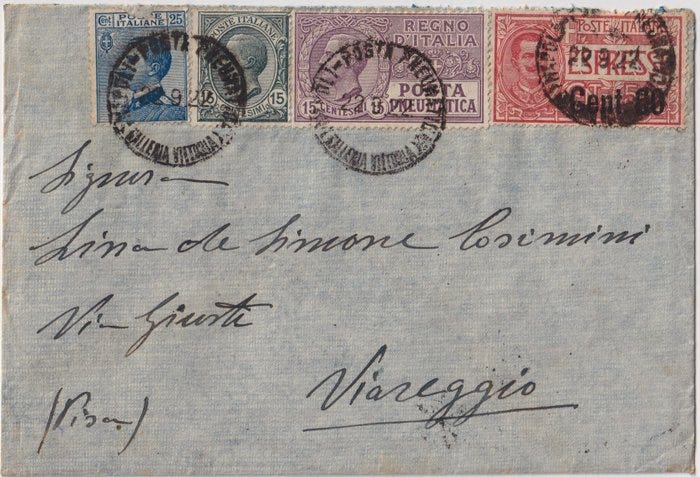 Cent. POSTE 25
ITALIANE
POSTE ITALIANE
15 CENTESIMI 15
REGNO
D'ITALIA
POSTA
PNEUMATICA
15 CENTESIMI 15
POSTE ITALIANE
ESPRESSO
Cent. 60
NAPOLI-POSTA PNEUMATICA
GALLERIA VITTORIA
22.9.22
Signora
Lina de Simone Cosimini
Via Giusti
Viareggio
(Pisa)